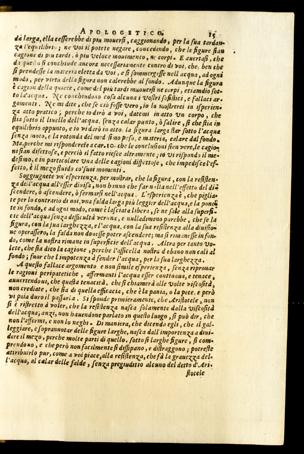 APOLOGETICO. 15
da larga, ella cesserebbe di più muoversi, cagionando, per la sua tardan-
za l'equilibrio; ne voi il potete negare, concedendo, che le figure sian
cagione di più tardi, ò più veloce movimento, ne' corpi. E avertasi, che
da questo si conchiude ancora necessariamente contro di voi, che, ben che
si prendesse la materia eletta da voi, e si sommergesse nell'acqua, ad ogni
modo, per virtù della figura non calerebbe al fondo. Adunque la figura
è cagion della quiete, come del più tardi muoversi ne' corpi, e tiamdio sot-
to l'acqua. Ne concludono cosa alcuna i vostri sofistici, e fallaci ar-
gomenti. Ne mi dite, che se ciò fosse vero, io lo mostrerei in esperien-
za atto pratico, perche io dirò a voi, datemi in atto un corpo, che
stia sotto il livello dell'acqua, senza calar punto, ò salire, sì che stia in
equilibrio apponto, e io vedrò in atto la figura larga star sotto l'acqua
senza moto, e la rotonda del medesimo peso, e materia, calare dal fondo.
Ma, perche mi risponderete a car. che le conclusioni sien vere, le cagio-
ni stan difettose, e perciò il fatto riesce altramente; io vi rispondo il me-
desimo, e in particolare una delle cagioni difettose, che impedisce l'ef-
fetto, è il mezo fluido
Soggiungete un'esperienza, per mostrar, che la figura, con la resistenza
dell'acqua all'esser divisa, non hanno che far nulla nell'effetto del di-
scendere, ò ascendere, ò fermarsi nell'acqua. L'esperienza è, che pigliate
per lo contrario di noi, una falda larga più leggiere dell'acqua, e la ponete
in fondo, e ad ogni modo, come è lasciata libera, se ne sale alla superfi-
cie dell'acqua senza difficultà veruna, e nulladimeno parrebbe, che se la
figura, con la sua larghezza, e l'acqua, con la sua resistenza alla divisio-
ne operassero, la falda non dovesse poter ascendere; ma si rimanesse in fon-
do, come la nostra rimane in superficie dell'acqua. Altro per tanto vo-
lete, che sia dove la cagione, perche l'assicella nostra di ebano non cali al
fondo; fuor che l'impotenza à fender l'acqua, per la sua larghezza.
A questo fallace argomento e non simile esperienza, senza riprovar
le ragioni peripatetiche, affermanti l'acqua esser continua, e tenace,
avvertendovi, che questa tenacità, che si chiamerà alle volte viscosità,
non crediate, che sia di quella efficacia, che è la pania, o la pece, e però
vi paia duro il passarla. Si risponde primieramente, che Aristotele, non
si è ristretto à voler, che la resistenza nasca solamente dalla viscosità
dell'acqua, anzi, non havendone parlato in questo luogo, si può dir, che
non l'affermi, e non lo neghi. Di maniera, che dicendo egli, che il gal-
leggiare, e soprannotar delle figure larghe, nasca dall'impotenza a divi-
dere il mezo, perche molte parti di quello, sotto sì larghe figure, si com-
prendono, e che però non facilmente si dissipano, e distraggono; potreste
attribuirlo pur, come a voi piace, alla resistenza, che fà la gravezza del-
l'acqua, al calar delle falde, senza pregiuditio alcuno del detto d'Ari-
stotele